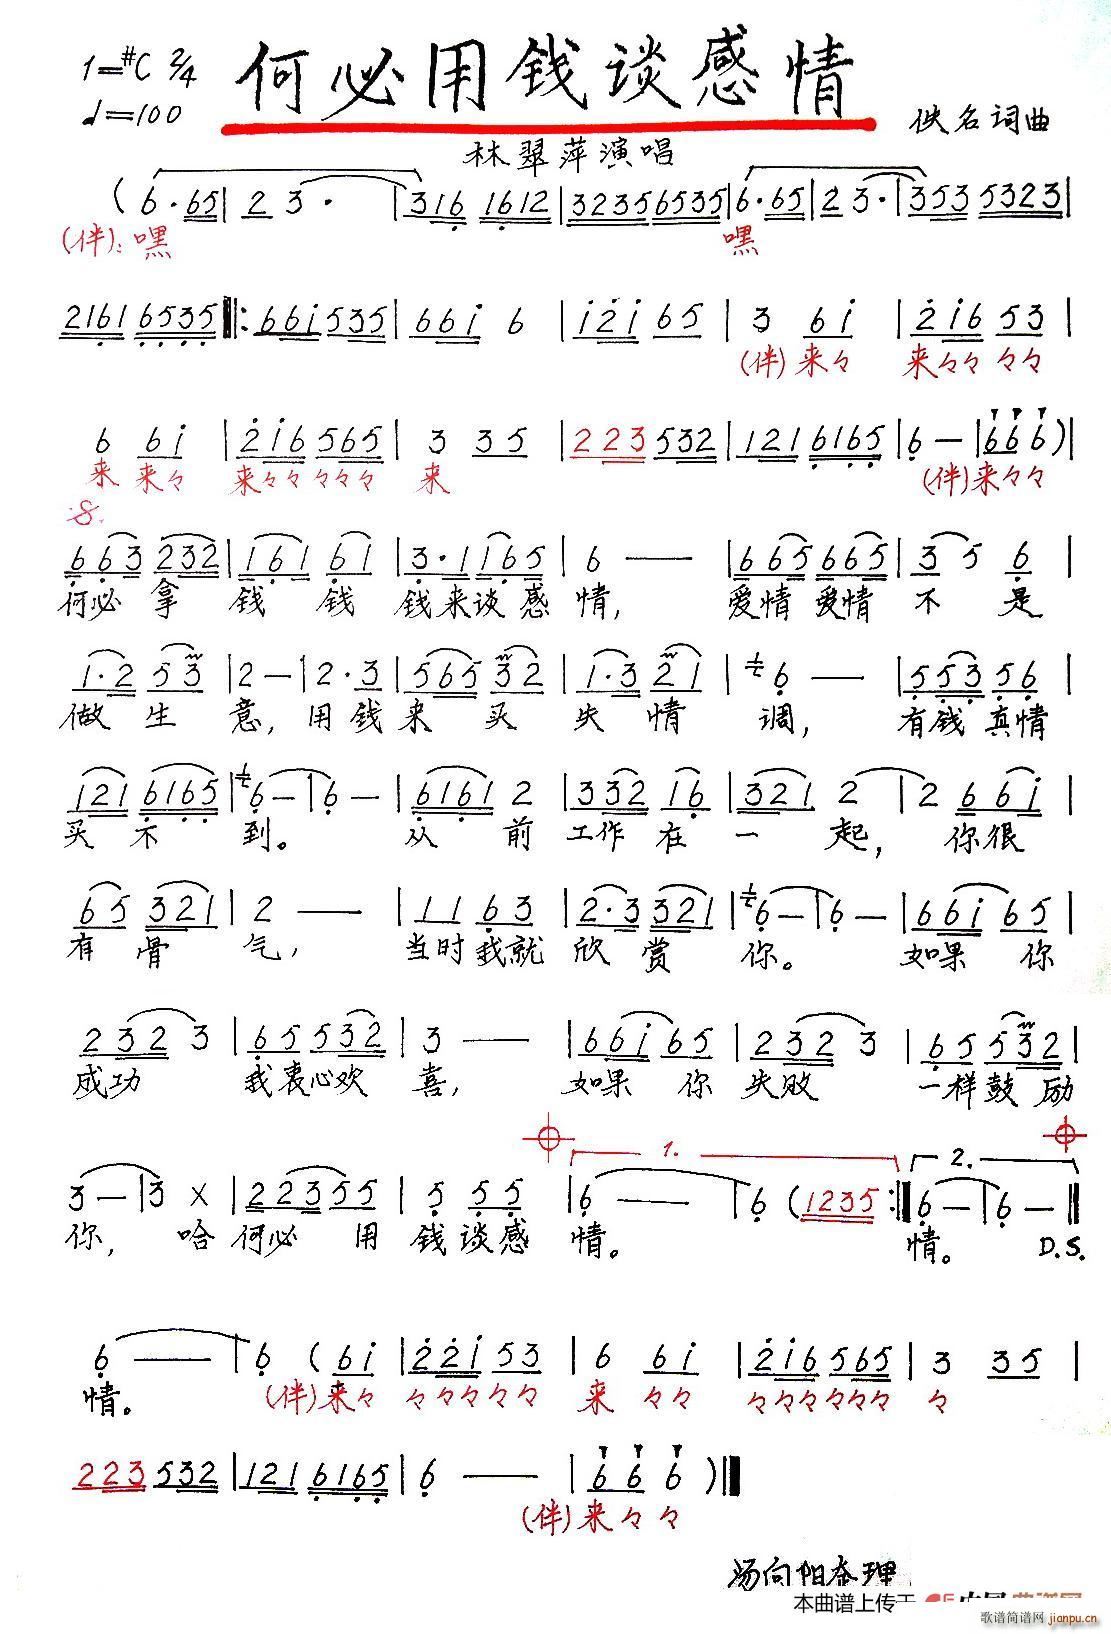 1=#C 2/4 何必用钱谈感情
♩=100 佚名词曲
林翠萍演唱
(6·65|2 3·|316 1612|32356535|6·65|2 3·|353 5323|
(伴):嘿 嘿
2161 6535‖:661535|661 6|121 65|3 61|216 53|
(伴)来々 来々々 々々
6 61|216 565|3 35|223 532|121 6165|6—|666)|
来 来々 来々々 々々々 来 (伴)来々々
663 232|161 61|3·1165|6——|665665|35 6|
何必 拿 钱 钱 钱来谈感 情, 爱情 爱情 不 是
1·2 53|2—|2·3|565 32|1·3 21|6——|553 56|
做 生 意, 用钱来 买 失 情 调, 有钱真情
121 6165|6—|6—|6161 2|332 16|321 2|2 661|
买 不 到。 从 前 工作在 一 起, 你很
65 321|2——|11 63|2·3321|6—|6—|661 65|
有 骨 气, 当时我就 欣 赏 你。 如果 你
2323|65532|3——|661 65|2323|65532|
成功 我衷心欢 喜, 如果 你 失败 一样鼓 励
1. 2.
3—|3 X|22355|5 55|6——|6(1235:‖6—|6—‖
你, 哈 何必 用 钱谈感 情。 情。 D.S.
6——|6(61|221 53|6 61|216565|3 35|
情。 (伴)来々 々々々々々 来 々々 々々々々々々 々
223 532|121 6165|6——|666)‖
(伴)来々々
汤向阳
本曲谱上传于
歌谱简谱网 jianpu.cn